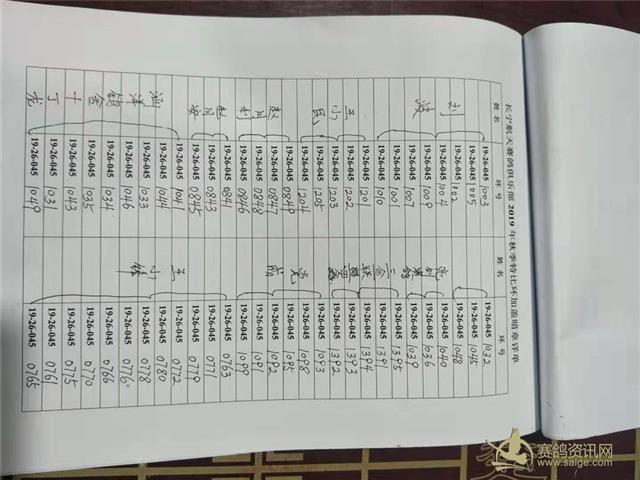 长宁航天赛鸽俱乐部 2019 年秋季特比环加盖暗章详单
姓名 环号 姓名 环号
19-26-045 1003 19-26-045 1032
19-26-045 1005 19-26-045 1045
刘 19-26-045 1002 19-26-045 1048
19-26-045 1004 19-26-045 1040
波 19-26-045 1009 19-26-045 1036
19-26-045 1007 19-26-045 1039
19-26-045 1001 19-26-045 1395
19-26-045 1010 19-26-045 1391
王 19-26-045 1201 19-26-045 1394
小 19-26-045 1202 19-26-045 1393
19-26-045 1203 19-26-045 1392
民 19-26-045 1205 19-26-045 1093
19-26-045 1204 19-26-045 1098
19-26-045 0849 19-26-045 1095
赵 19-26-045 0847 19-26-045 1092
月 19-26-045 0848 19-26-045 1091
19-26-045 0846 19-26-045 1099
19-26-045 0841 19-26-045 0763
19-26-045 0843 19-26-045 0771
19-26-045 0845 19-26-045 0779
19-26-045 1041 王 19-26-045 0772
19-26-045 1044 19-26-045 0780
洋 19-26-045 1033 小 19-26-045 0778
19-26-045 1046 19-26-045 0776
19-26-045 1034 19-26-045 0766
金 19-26-045 1035 19-26-045 0770
十 19-26-045 1043 19-26-045 0775
丁 19-26-045 1031 19-26-045 0761
龙 19-26-045 1049 19-26-045 0765
赛鸽资讯网
www.saige.com